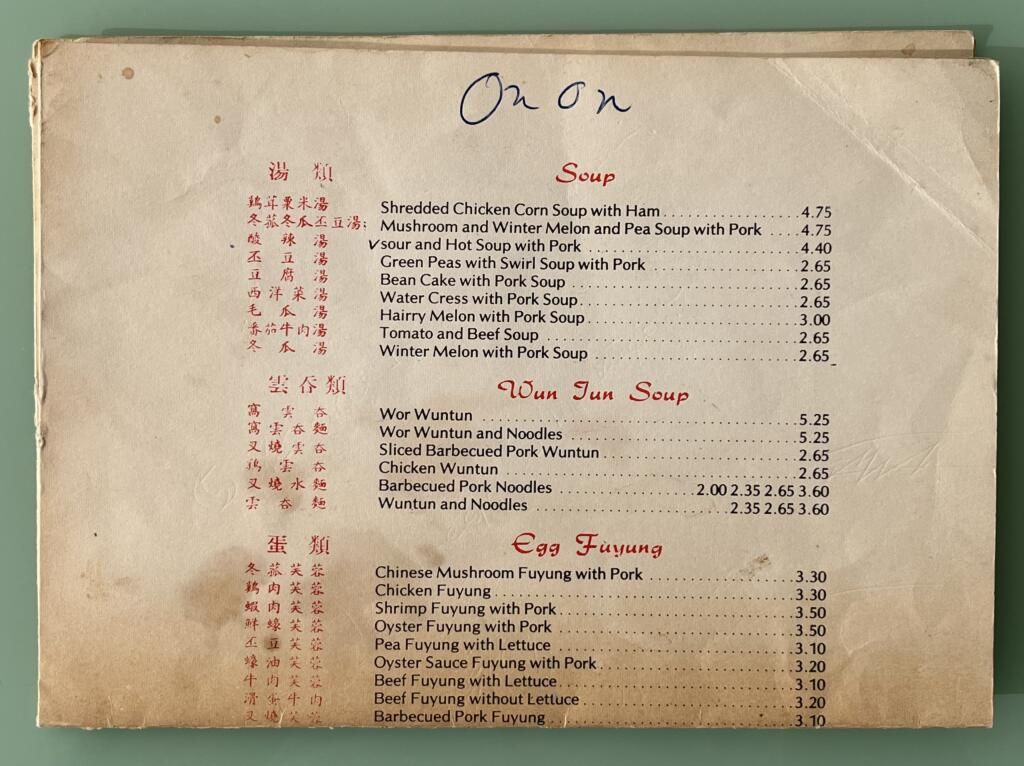 On On
湯 類 Soup
鷄茸粟米湯 Shredded Chicken Corn Soup with Ham 4.75
冬菰冬瓜丕豆湯: Mushroom and Winter Melon and Pea Soup with Pork 4.75
酸辣湯 ✓sour and Hot Soup with Pork 4.40
丕豆湯 Green Peas with Swirl Soup with Pork 2.65
豆腐湯 Bean Cake with Pork Soup 2.65
西洋菜湯 Water Cress with Pork Soup 2.65
毛瓜湯 Hairry Melon with Pork Soup 3.00
番茄牛肉湯 Tomato and Beef Soup 2.65
冬瓜湯 Winter Melon with Pork Soup 2.65
雲吞類 Wun Tun Soup
窩雲吞 Wor Wuntun 5.25
窩雲吞麵 Wor Wuntun and Noodles 5.25
叉燒雲吞 Sliced Barbecued Pork Wuntun 2.65
鷄雲吞 Chicken Wuntun 2.65
叉燒水麵 Barbecued Pork Noodles 2.00 2.35 2.65 3.60
雲吞麵 Wuntun and Noodles 2.35 2.65 3.60
蛋類 Egg Fuyung
冬菰芙蓉 Chinese Mushroom Fuyung with Pork 3.30
鷄肉芙蓉 Chicken Fuyung 3.30
蝦肉芙蓉 Shrimp Fuyung with Pork 3.50
鮮蠔芙蓉 Oyster Fuyung with Pork 3.50
丕豆芙蓉 Pea Fuyung with Lettuce 3.10
蠔油芙蓉 Oyster Sauce Fuyung with Pork 3.20
牛肉芙蓉 Beef Fuyung with Lettuce 3.10
滑蛋牛肉 Beef Fuyung without Lettuce 3.20
叉燒芙蓉 Barbecued Pork Fuyung 3.10